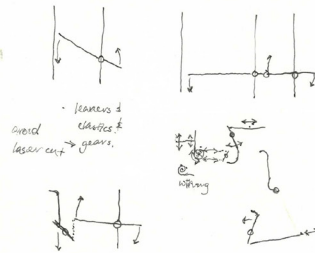 · leavers &
elastics. &
→ gears.
avoid
laser cut
wiring